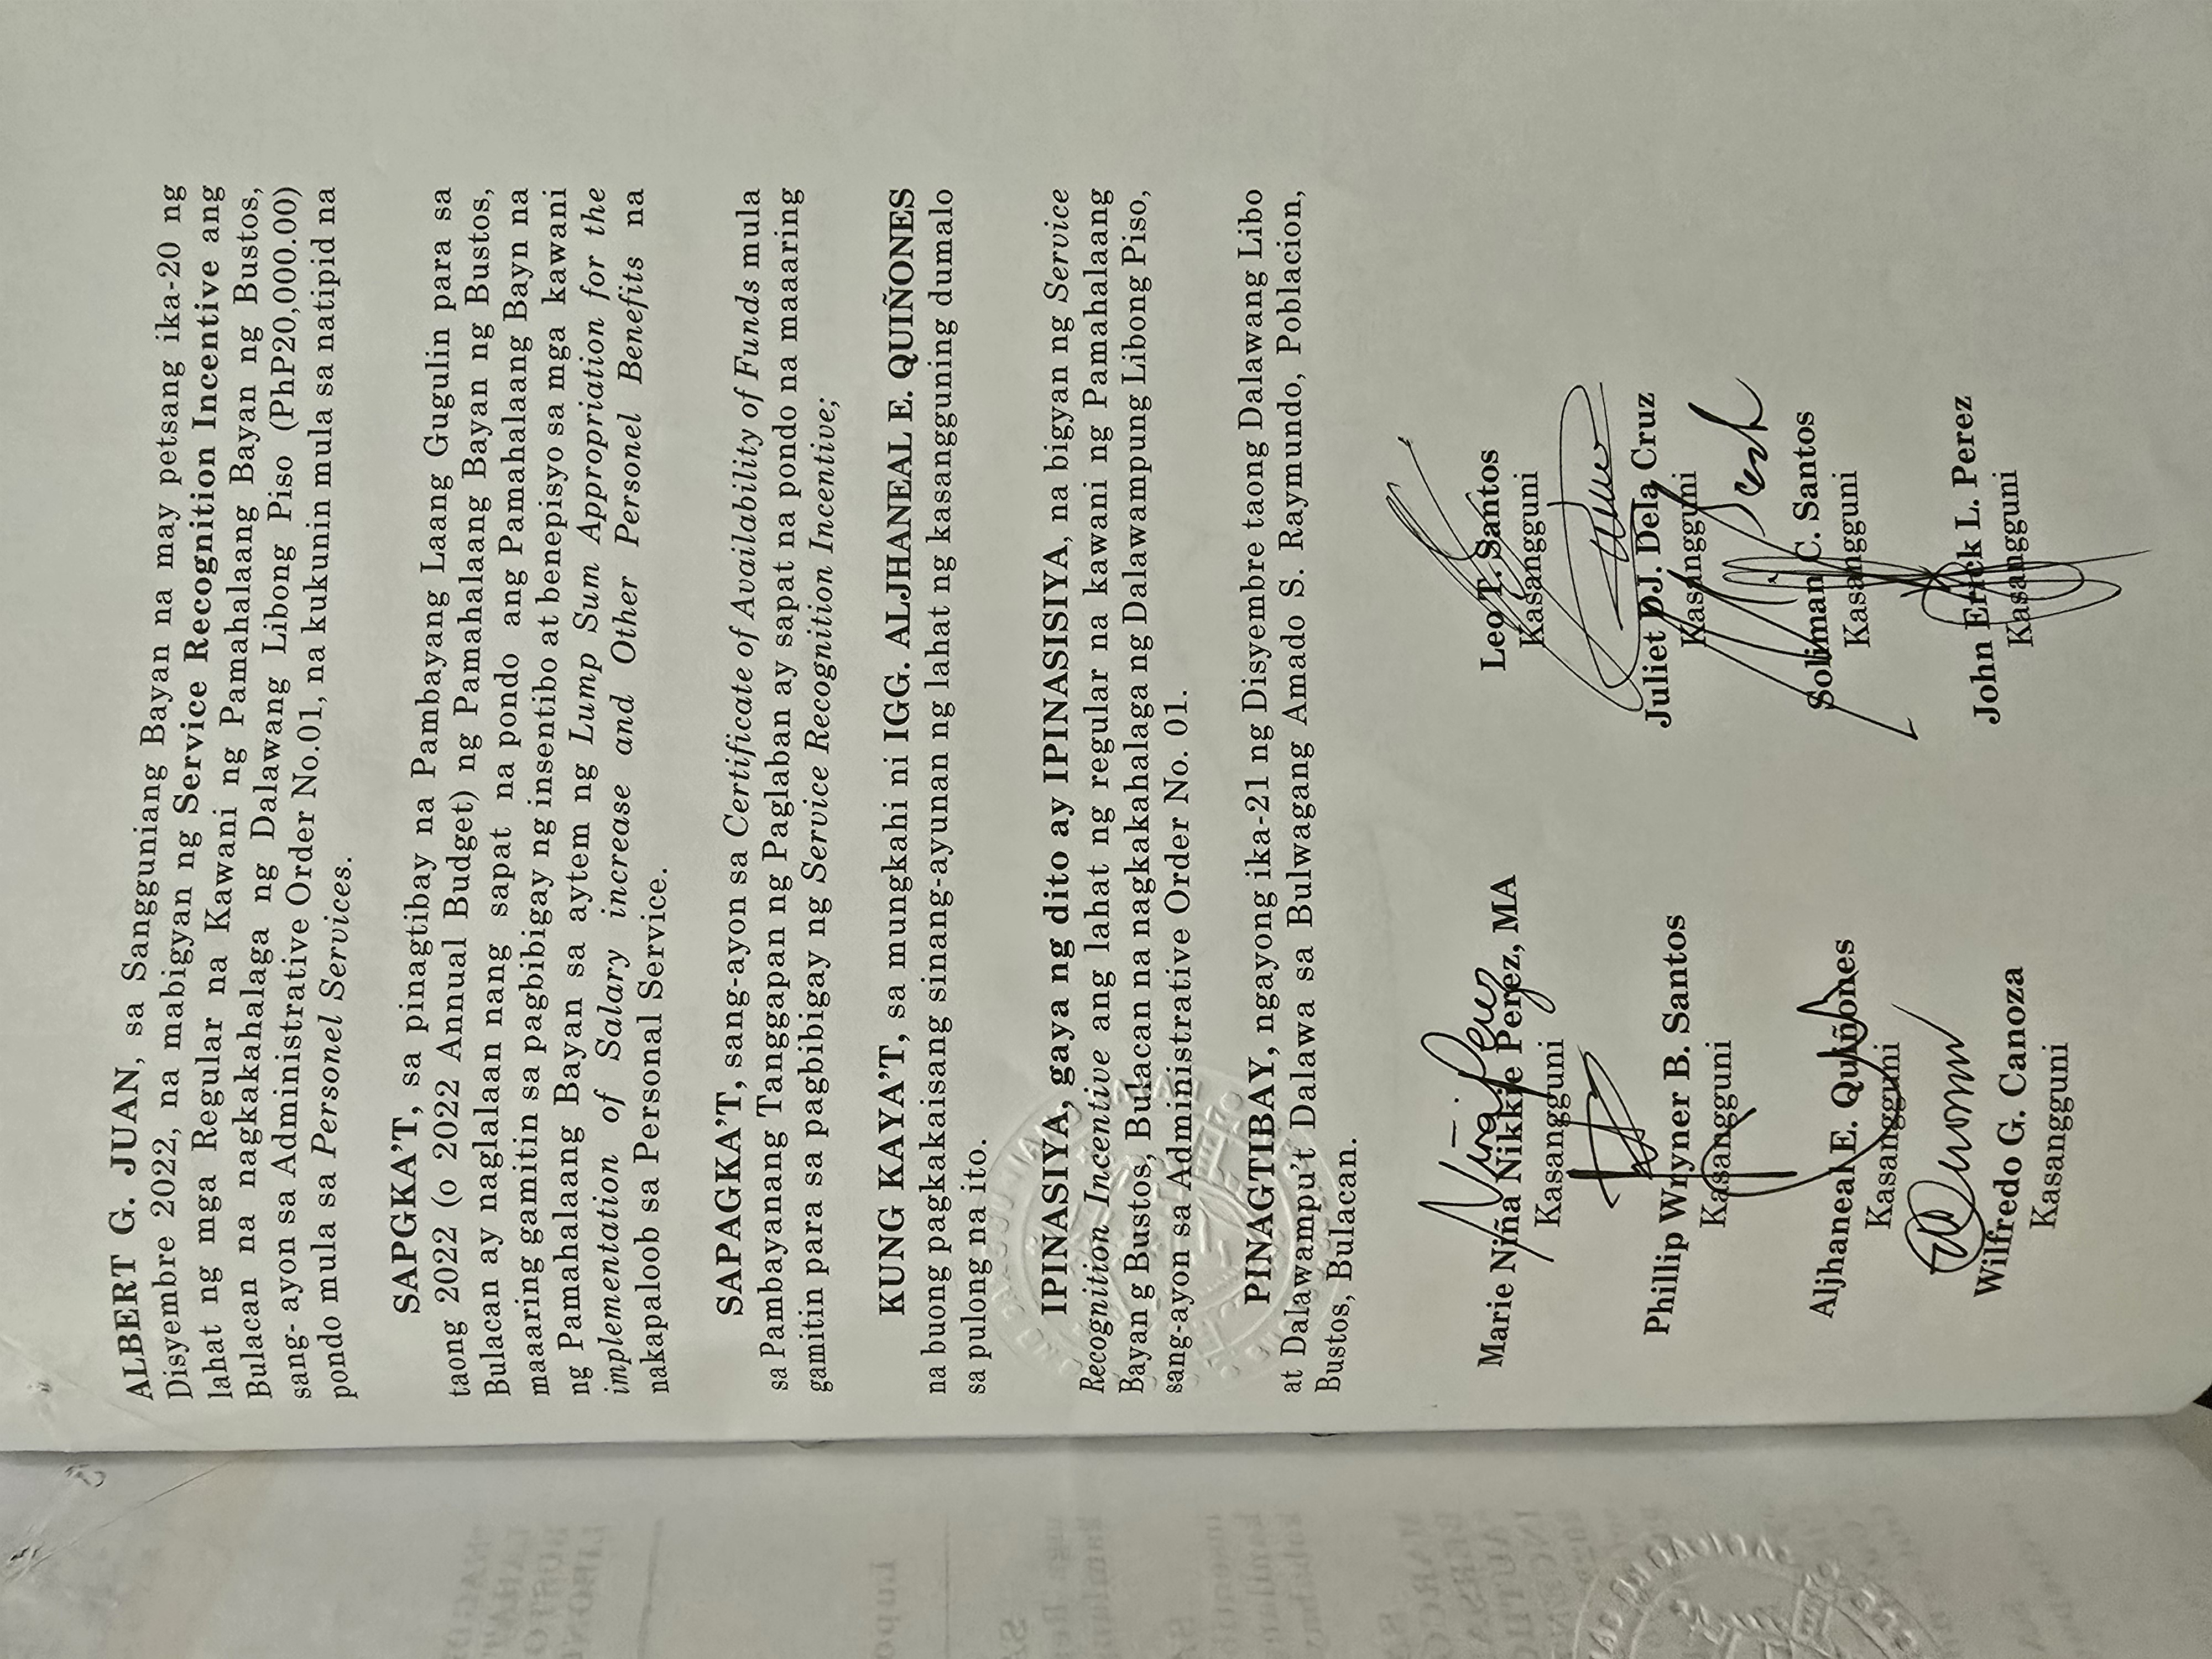 ALBERT G. JUAN, sa Sangguniang Bayan na may petsang ika-20 ng
Disyembre 2022, na mabigyan ng Service Recognition Incentive ang
lahat ng mga Regular na Kawani ng Pamahalaang Bayan ng Bustos,
Bulacan na nagkakahalaga ng Dalawang Libong Piso (PhP20,000.00)
sang- ayon sa Administrative Order No.01, na kukunin mula sa natipid na
pondo mula sa Personel Services.
SAPGKA'T, sa pinagtibay na Pambayang Laang Gugulin para sa
taong 2022 (o 2022 Annual Budget) ng Pamahalaang Bayan ng Bustos,
Bulacan ay naglalaan nang sapat na pondo ang Pamahalaang Bayn na
maaaring gamitin sa pagbibigay ng insentibo at benepisyo sa mga kawani
ng Pamahalaang Bayan sa aytem ng Lump Sum Appropriation for the
implementation of Salary increase and Other Personel Benefits na
nakapaloob sa Personal Service.
SAPAGKA'T, sang-ayon sa Certificate of Availability of Funds mula
sa Pambayanang Tanggapan ng Paglaban ay sapat na pondo na maaaring
gamitin para sa pagbibigay ng Service Recognition Incentive;
KUNG KAYA'T, sa mungkahi ni IGG. ALJHANEAL E. QUIÑONES
na buong pagkakaisang sinang-ayunan ng lahat ng kasangguning dumalo
sa pulong na ito.
IPINASIYA, gaya ng dito ay IPINASISIYA, na bigyan ng Service
Recognition Incentive ang lahat ng regular na kawani ng Pamahalaang
Bayan g Bustos, Bulacan na nagkakahalaga ng Dalawampung Libong Piso,
sang-ayon sa Administrative Order No. 01.
PINAGTIBAY, ngayong ika-21 ng Disyembre taong Dalawang Libo
at Dalawampu't Dalawa sa Bulwagang Amado S. Raymundo, Poblacion,
Bustos, Bulacan.
Marie Niña Nikkie Perez, MA
Kasangguni
Leo T. Santos
Kasangguni
Phillip Wryner B. Santos
Kasangguni
Juliet DJ. Dela Cruz
Kasangguni
Aljhaneal E. Quiñones
Kasangguni
Soliman C. Santos
Kasangguni
Wilfredo G. Canoza
Kasangguni
John Erick L. Perez
Kasangguni